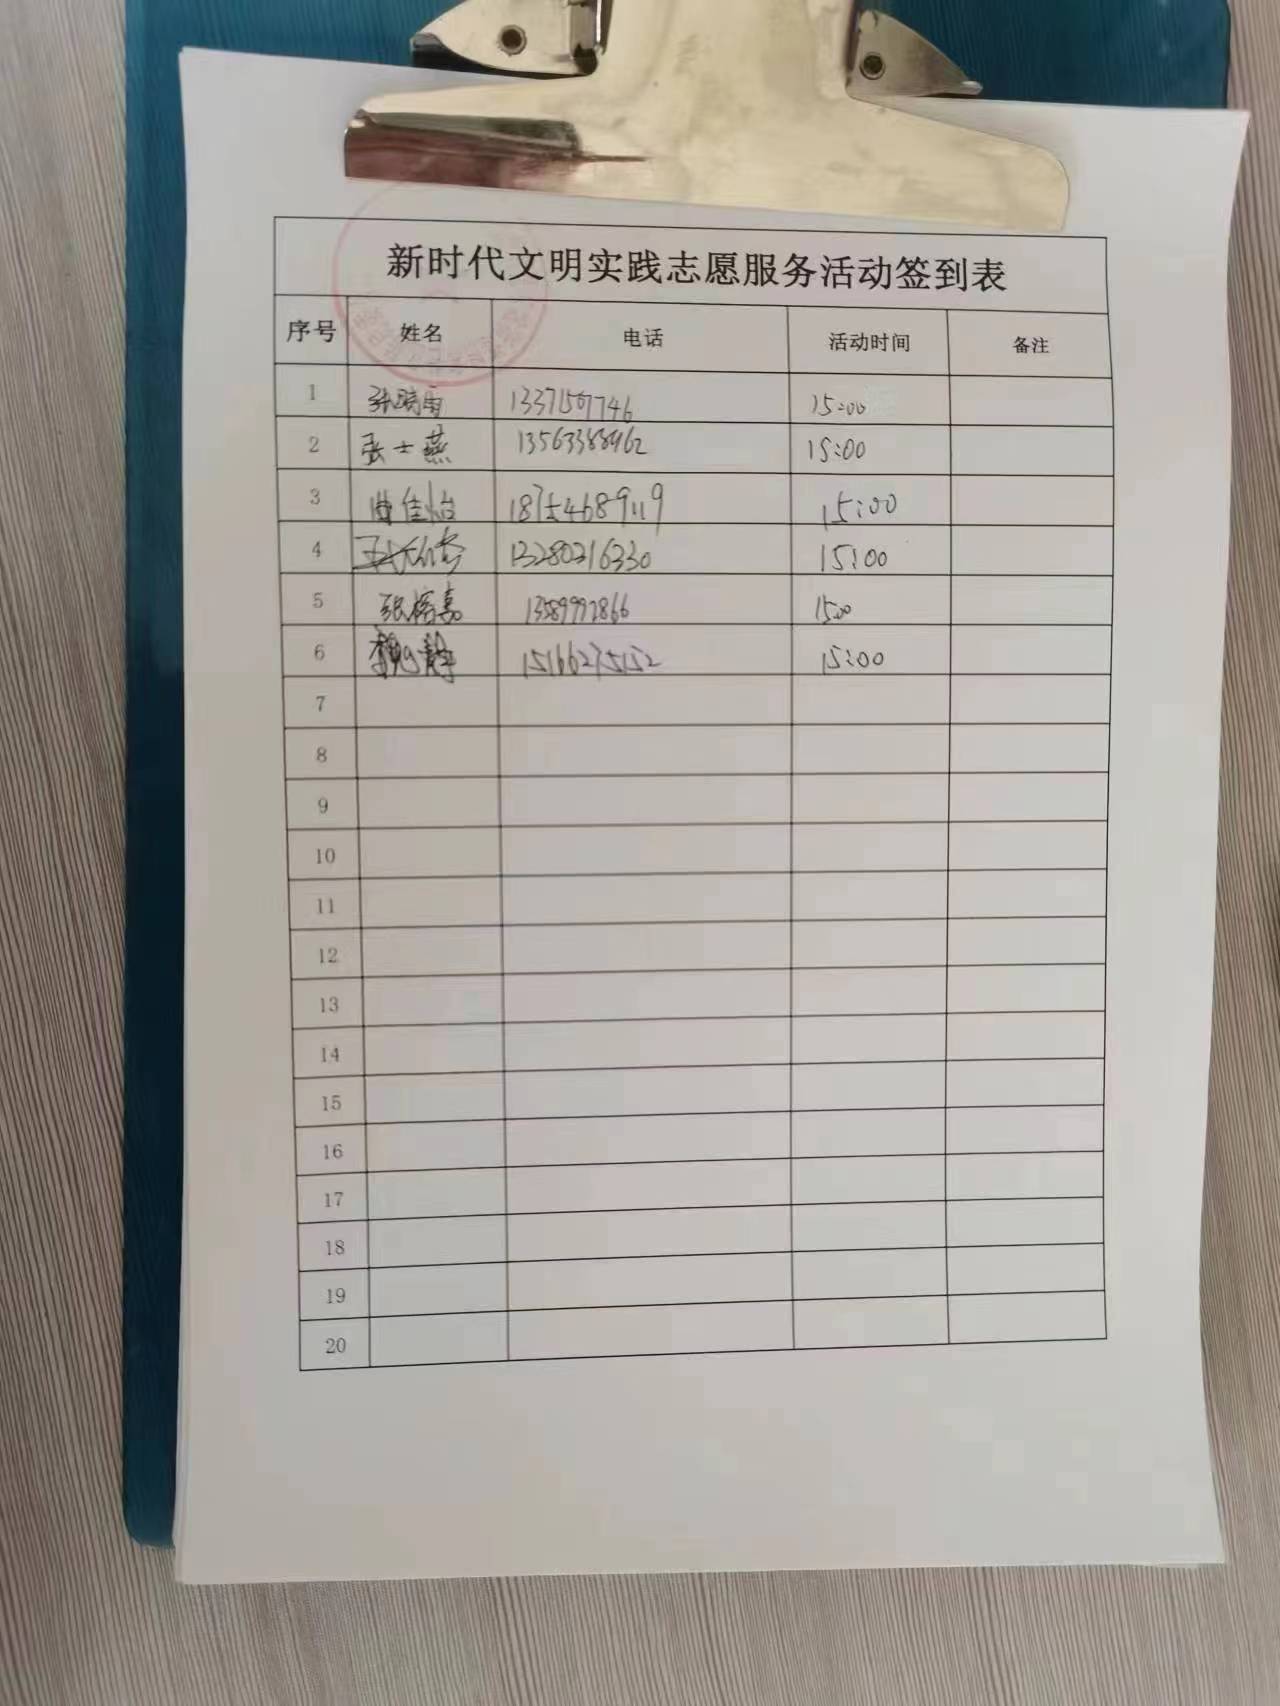 新时代文明实践志愿服务活动签到表
序号 姓名 电话 活动时间 备注
1 张晓雨 13371507746 15:00
2 张士燕 13563388962 15:00
3 曲佳怡 18754689119 15:00
4 13280216330 15:00
5 张榕嘉 13589992866 15:00
6 15166275152 15:00
7
8
9
10
11
12
13
14
15
16
17
18
19
20